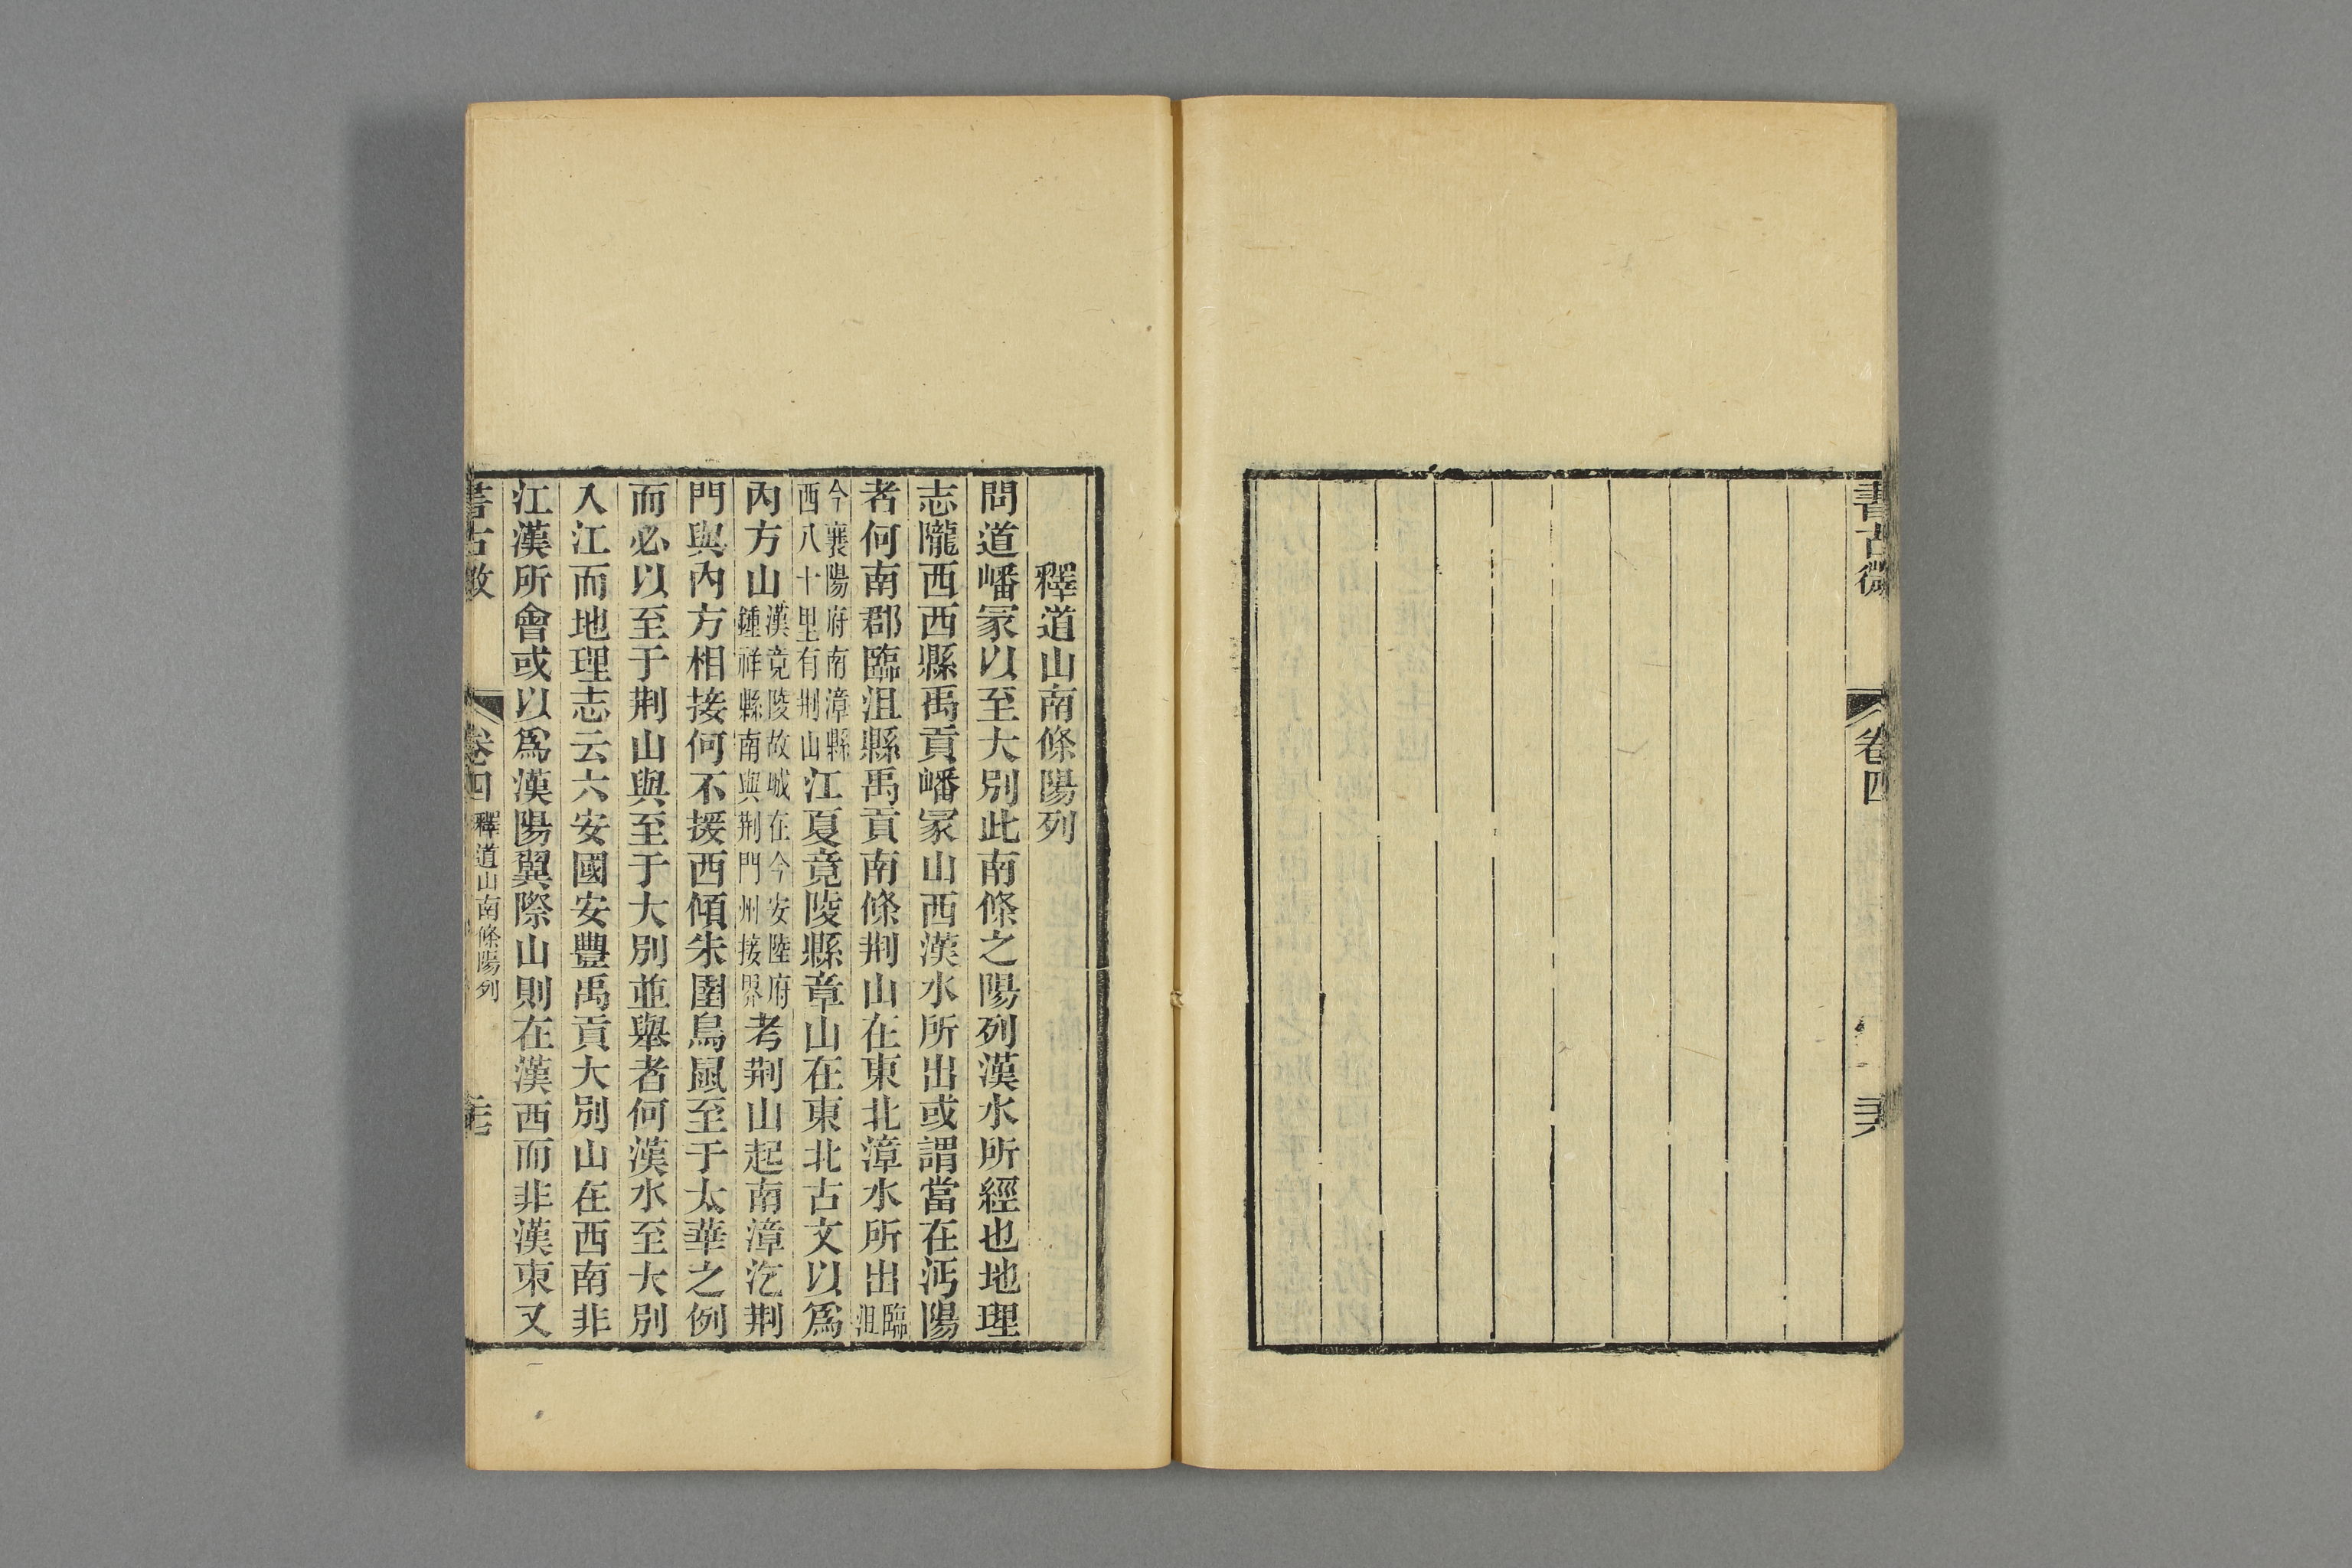 書古微
卷四
釋道山南條陽列
問道嶓冢以至大別此南條之陽列漢水所經也地理
志隴西西縣禹貢嶓冢山西漢水所出或謂當在沔陽
者何南郡臨沮縣禹貢南條荆山在東北漳水所出臨沮
今襄陽府南漳縣西八十里有荆山江夏竟陵縣章山在東北古文以爲
內方山漢竟陵故城在今安陸府鍾祥縣南與荆門州接界考荆山起南漳汔荆
門與內方相接何不援西傾朱圉鳥鼠至于太華之例
而必以至于荆山與至于大別並舉者何漢水至大別
入江而地理志云六安國安豐禹貢大別山在西南非
江漢所會或以爲漢陽翼際山則在漢西而非漢東又
書古微
卷四
釋道山南條陽列